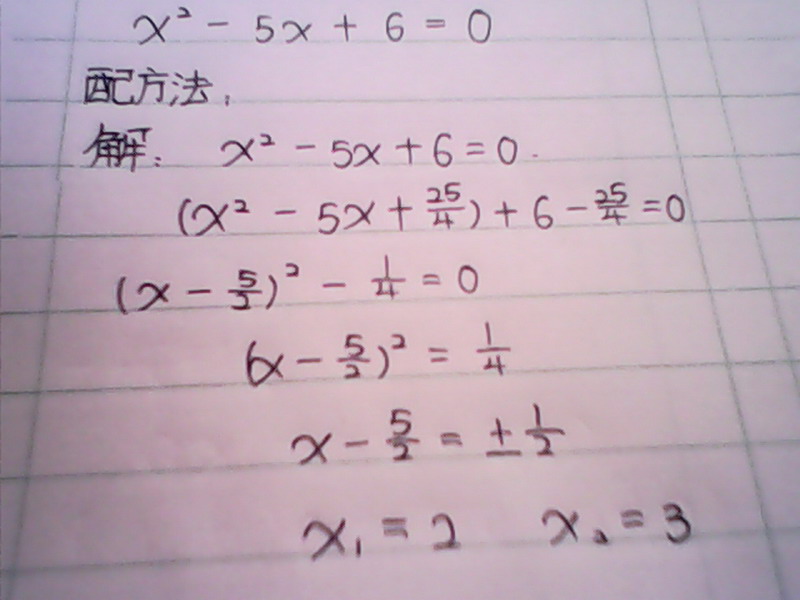 x² - 5x + 6 = 0
配方法:
解: x² - 5x + 6 = 0.
(x² - 5x + 25/4) + 6 - 25/4 = 0
(x - 5/2)² - 1/4 = 0
(x - 5/2)² = 1/4
x - 5/2 = ± 1/2
x₁ = 2 x₂ = 3